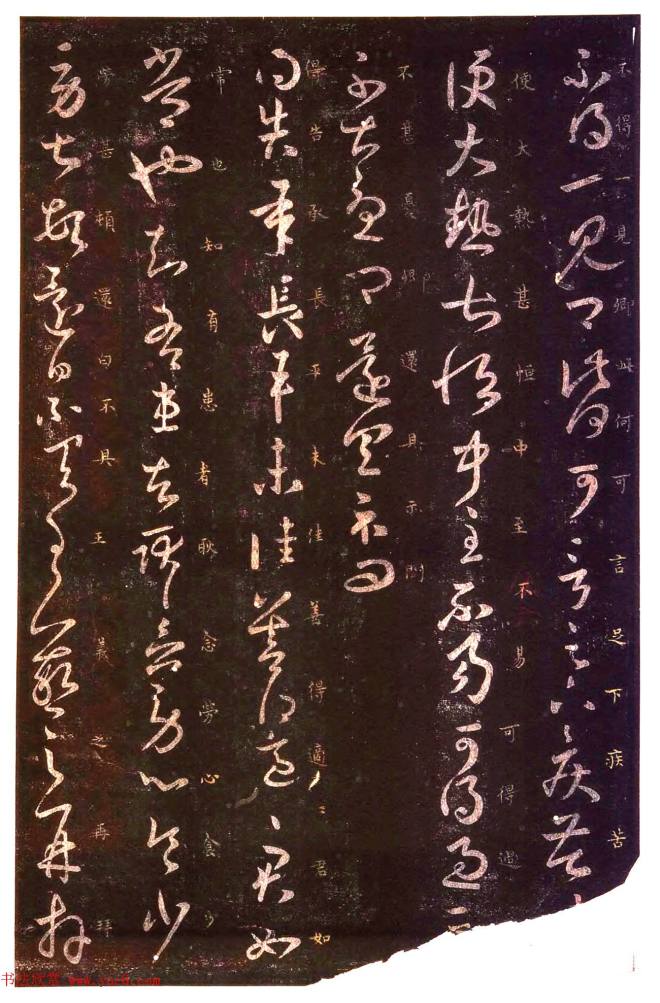 不得一見卿此何可言足下疾苦
便大熱甚恒中至不易可得過
不甚憂卿還具示問
得告承長平未佳善得適君如
常也知有患者耿念勞心食少
勞甚頓還白不具王羲之再拜
书法欣赏 www.yac8.com